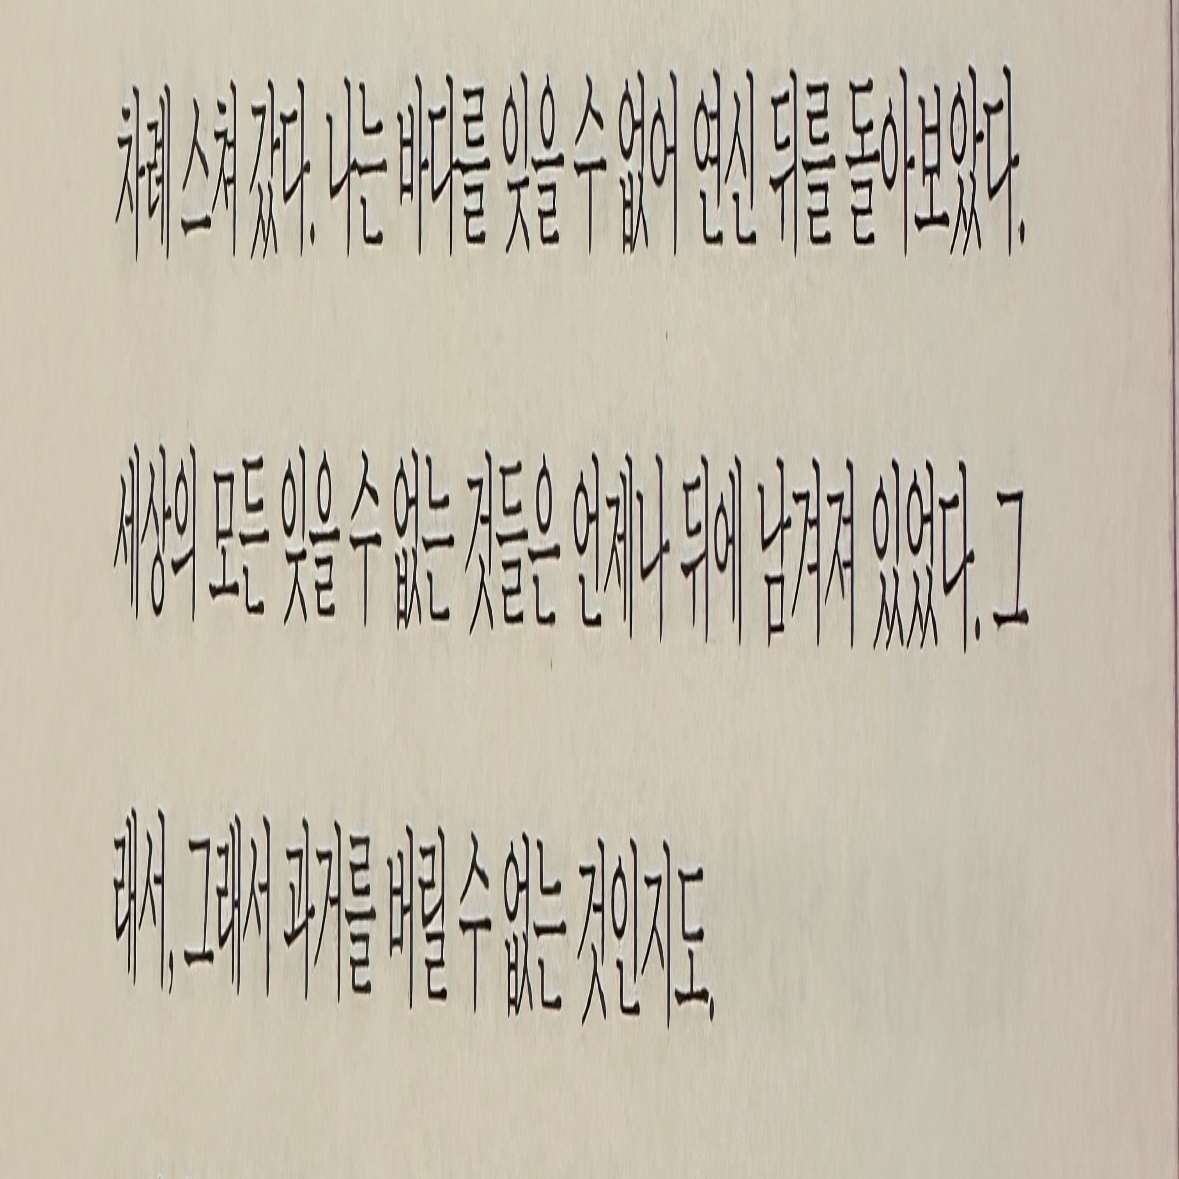 차례 스쳐 갔다. 나는 바다를 잊을 수 없어 연신 뒤를 돌아보았다.
세상의 모든 잊을 수 없는 것들은 언제나 뒤에 남겨져 있었다. 그
래서, 그래서 과거를 버릴 수 없는 것인지도.